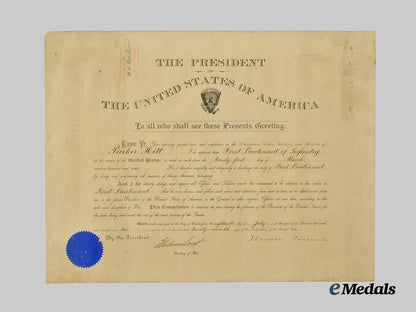 THE PRESIDENT
OF
THE UNITED STATES OF AMERICA
To all who shall see these Presents, Greeting:
Know Ye, That reposing special trust and confidence in the Patriotism, Valor, Fidelity and Abilities of
Parker Hitt I do appoint him First Lieutenant of Infantry
in the service of the United States: to rank as such from the Twenty first day of March
nineteen hundred and one. He is therefore carefully and diligently to discharge the duty of First Lieutenant
by doing and performing all manner of things thereunto belonging.
And I do strictly charge and require all Officers and Soldiers under his command to be obedient to his orders as
First Lieutenant. And he is to observe and follow such orders and directions from time to time, as he shall receive from
me or the future President of the United States of America or the General or other superior Officers set over him, according to the
rules and discipline of War. This Commission to continue in force during the pleasure of the President of the United States for
the time being and until the end of the next session of the Senate.
Given under my hand at the City of Washington, the eighteenth day of July in the year of our Lord one thousand
nine hundred and and in the one hundred and twenty sixth year of the Independence of the United States.
By the President:
Theodore Roosevelt
Elihu Root
Secretary of War.
eMedals